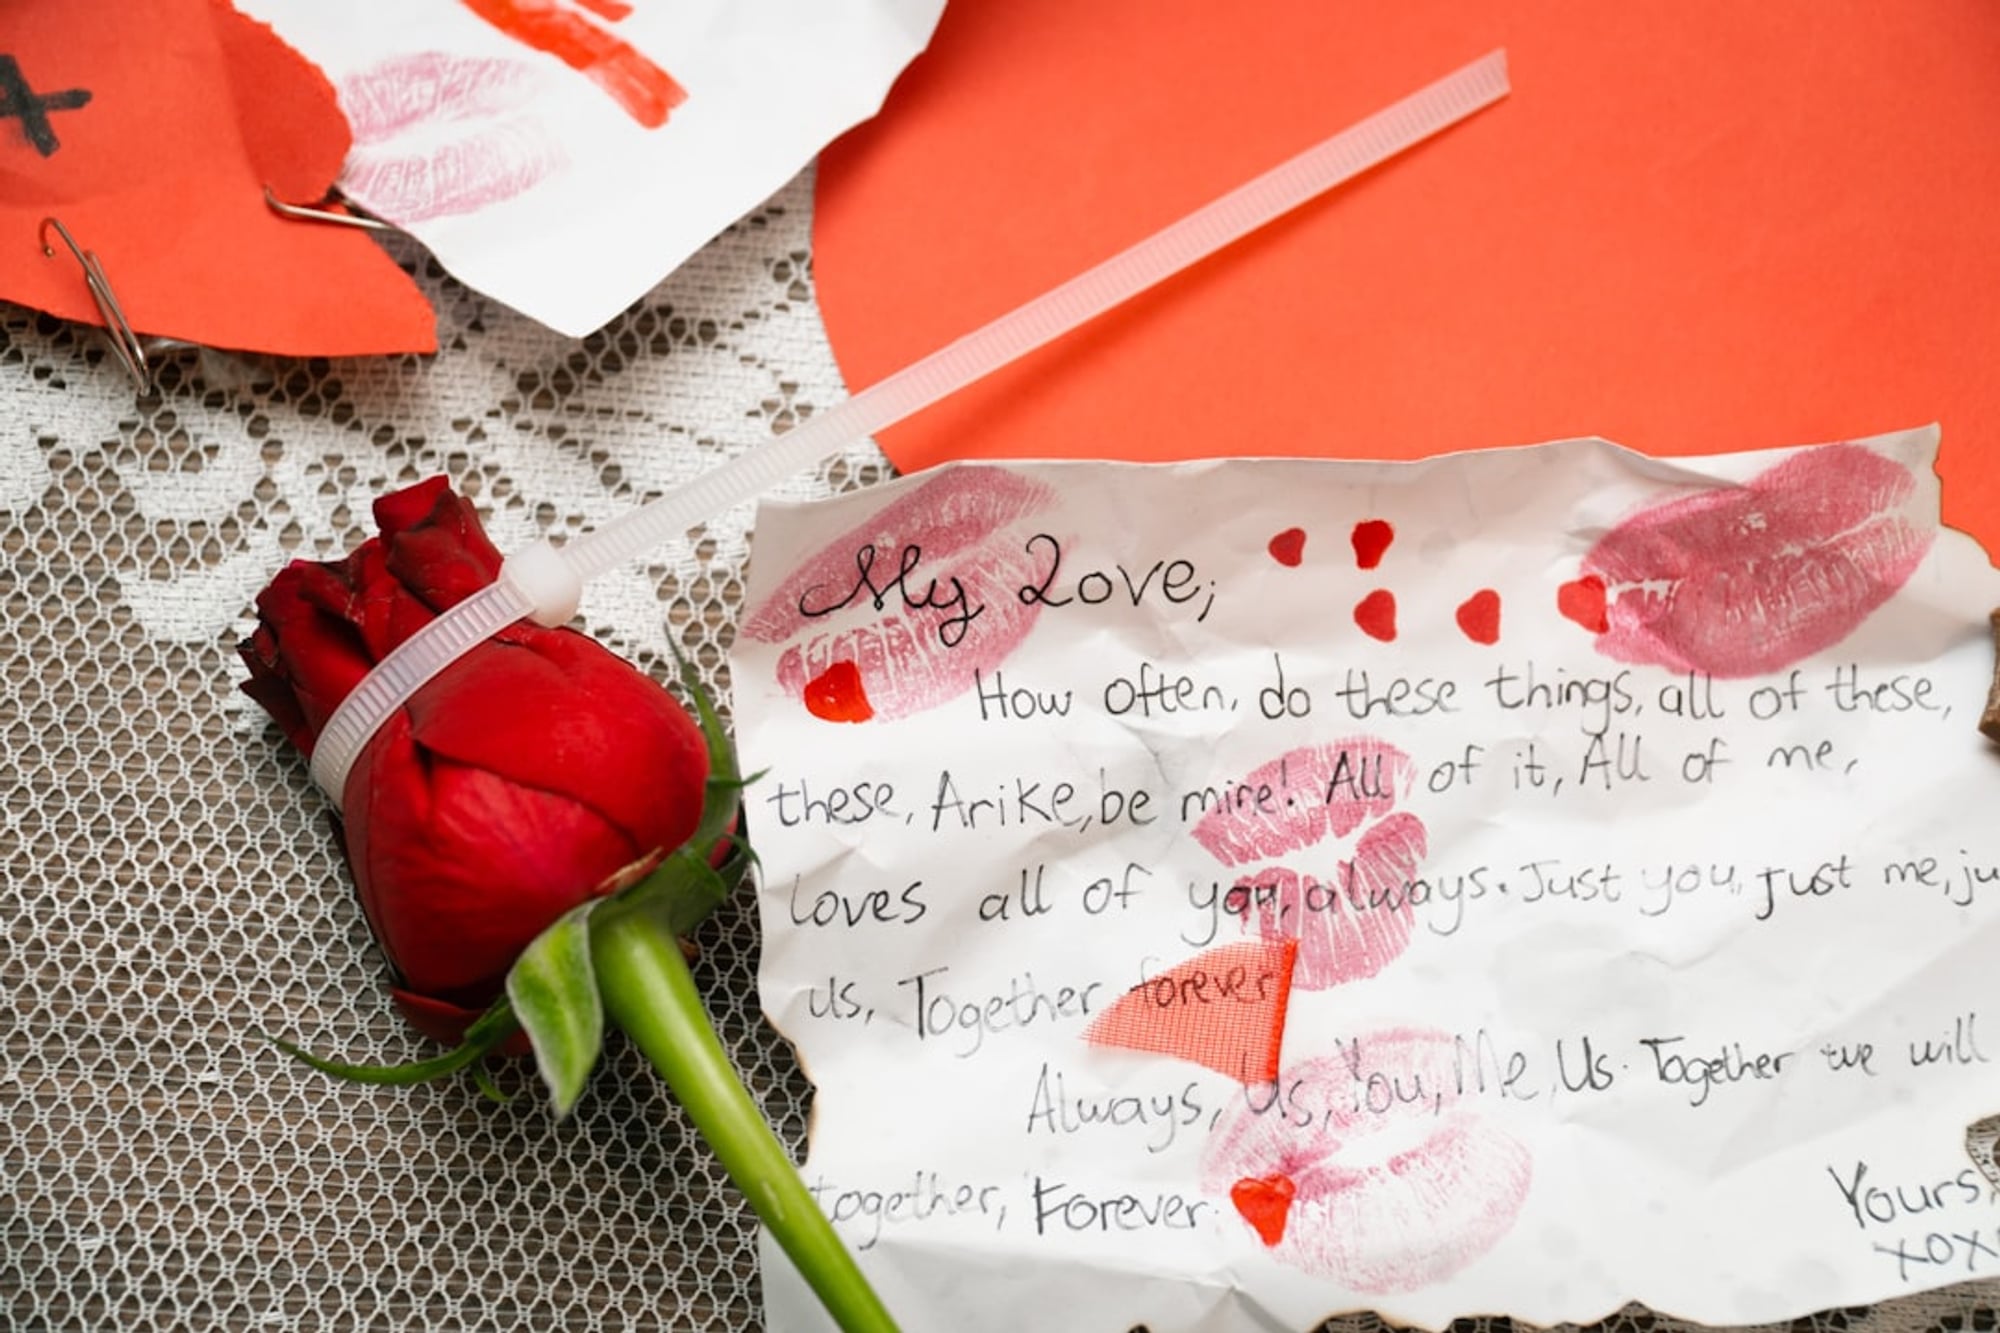 My Love;
How often, do these things, all of these,
these, Arike, be mine! All of it, All of me,
loves all of you, always. Just you, Just me, ju
us, Together forever
Always, Us, You, Me, Us. Together we will
together, Forever.
Yours,
xox